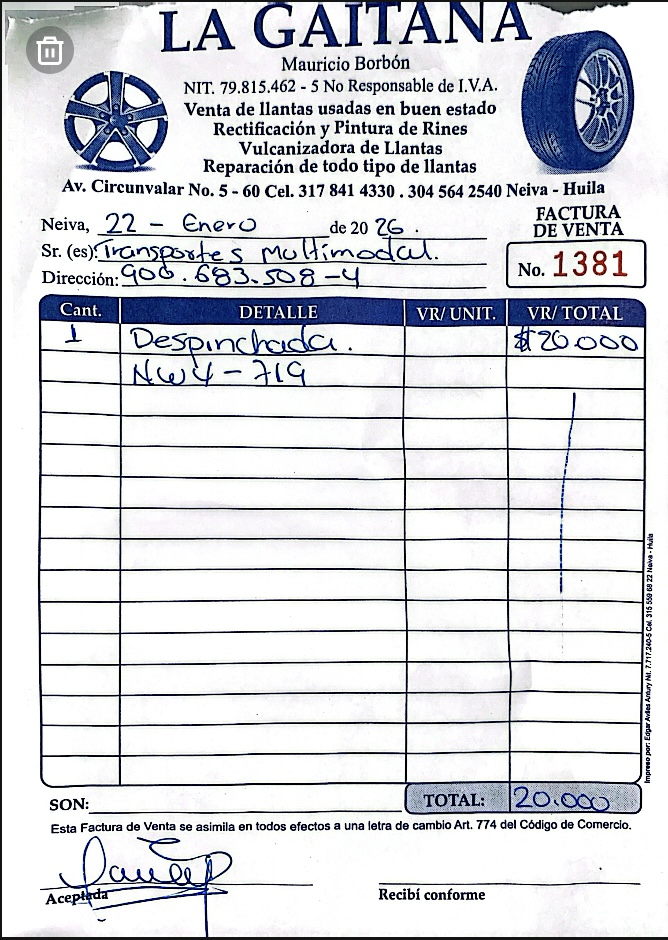 LA GAITANA
Mauricio Borbón
NIT. 79.815.462 - 5 No Responsable de I.V.A.
Venta de llantas usadas en buen estado
Rectificación y Pintura de Rines
Vulcanizadora de Llantas
Reparación de todo tipo de llantas
Av. Circunvalar No. 5 - 60 Cel. 317 841 4330 . 304 564 2540 Neiva - Huila
Neiva, 22 - Enero de 2026.
FACTURA DE VENTA
Sr. (es): Transportes multimodal.
No. 1381
Dirección: 900.683.508-4
Cant. DETALLE VR/ UNIT. VR/ TOTAL
1 Despinchada. $20.000
NW4-719
SON: TOTAL: 20.000
Esta Factura de Venta se asimila en todos efectos a una letra de cambio Art. 774 del Código de Comercio.
Aceptada Recibí conforme
Impreso por: Edgar Aviles Antury Nit. 7.717.240-5 Cel. 315 559 68 22 Neiva - Huila